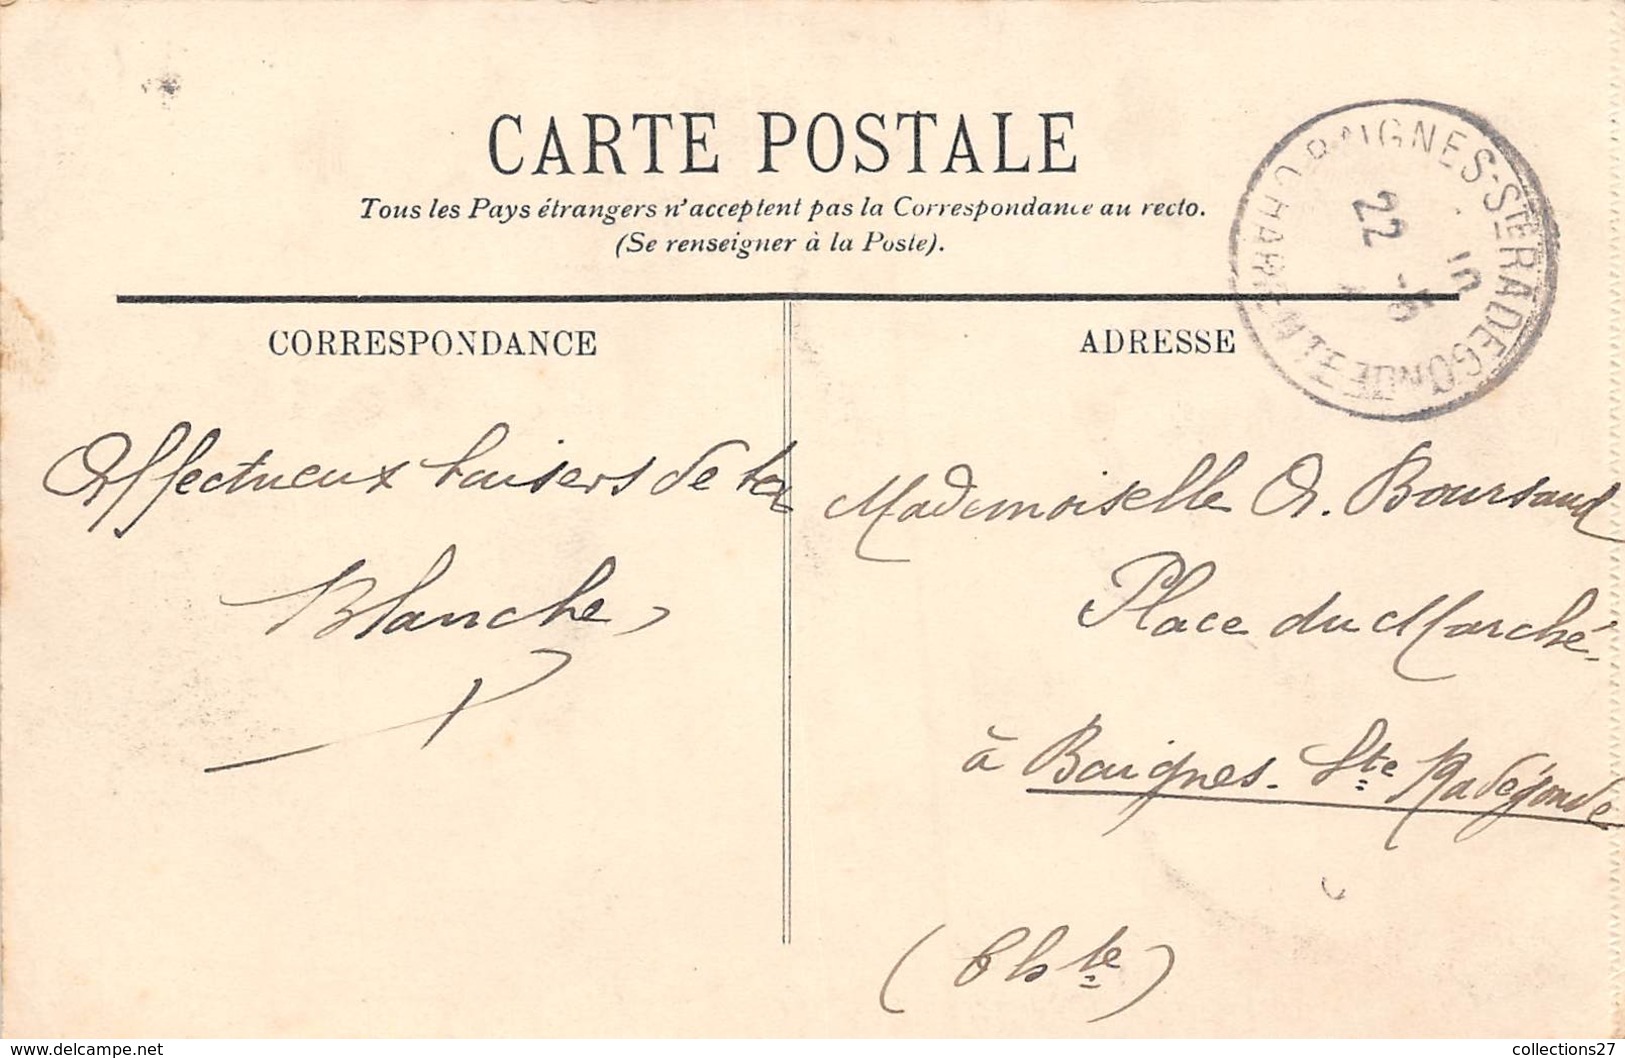 CARTE POSTALE
Tous les Pays étrangers n'acceptent pas la Correspondance au recto.
(Se renseigner à la Poste).
BAIGNES-STE RADEGONDE
CHARENTE
22
CORRESPONDANCE
Affectueux baisers de ta
Blanche
ADRESSE
Mademoiselle A. Boursaud
Place du Marché
à Baignes-Ste Radégonde
(Chte)
www.delcampe.net
collections27